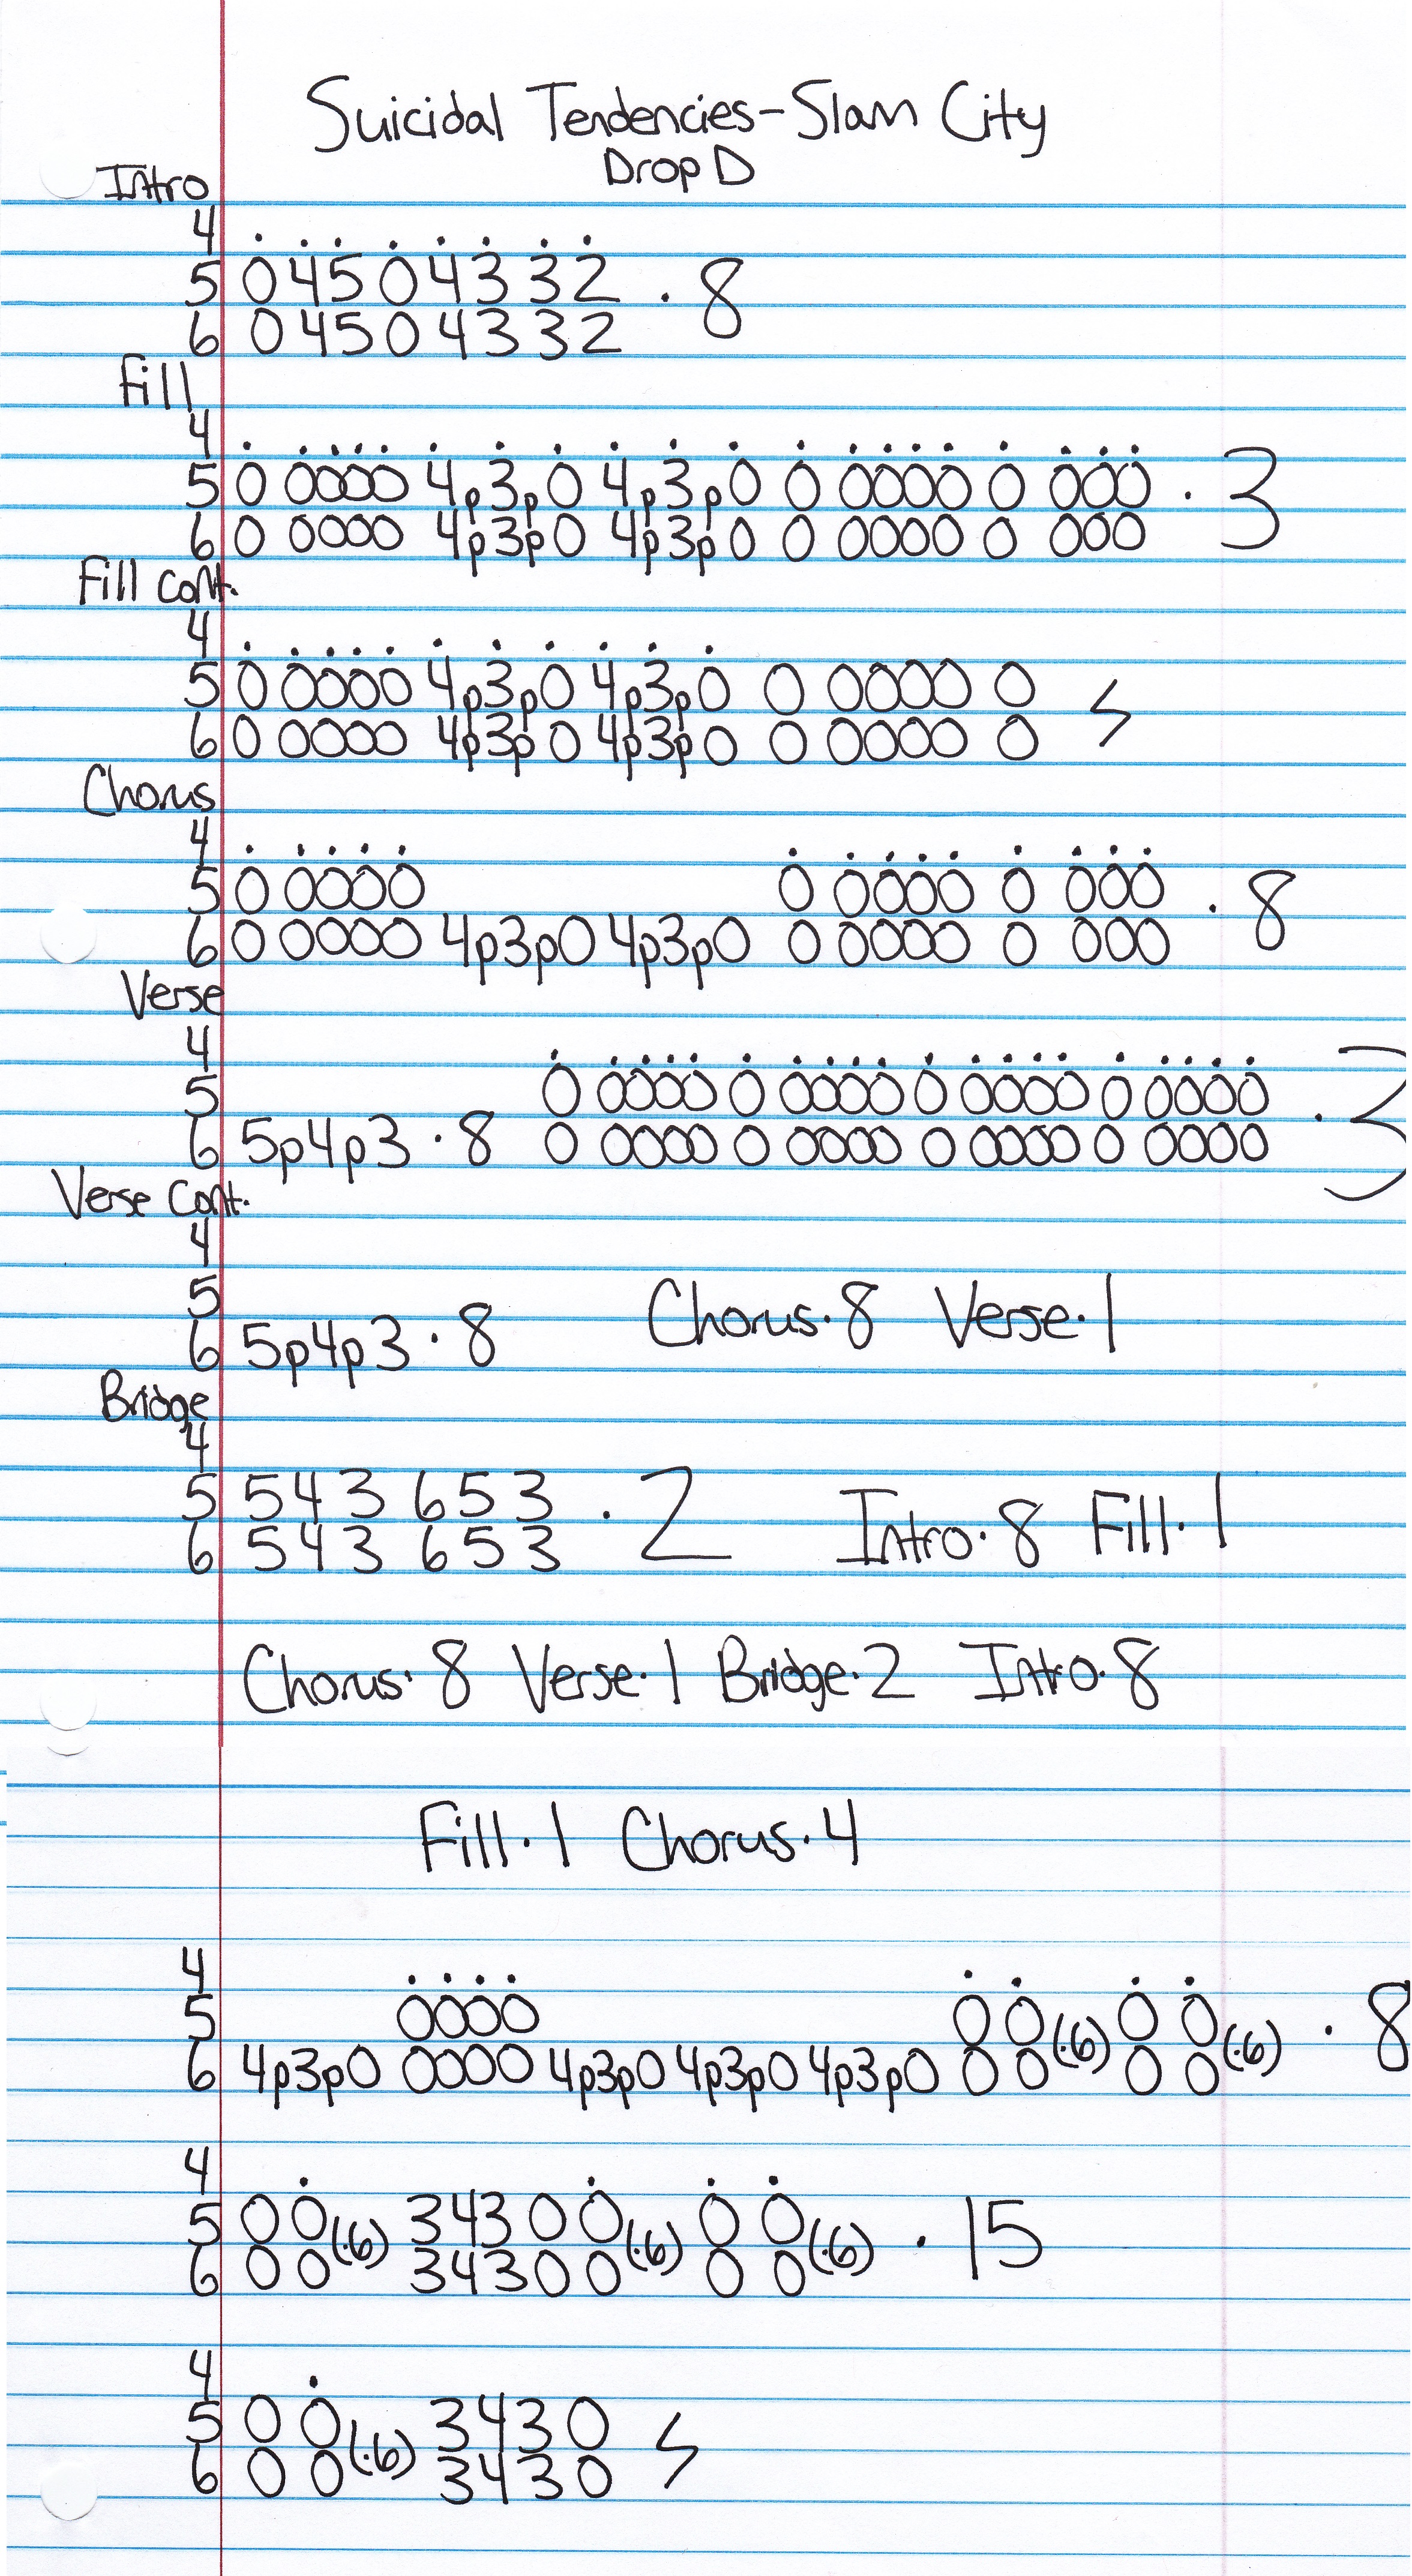 Suicidal Tendencies-Slam City
Drop D
Intro
4 . . . . . . . .
5 0 4 5 0 4 3 3 2 · 8
6 0 4 5 0 4 3 3 2
Fill
4 . .... . . . . . . . .... . ...
5 0 0000 4p3p0 4p3p0 0 0000 0 000 · 3
6 0 0000 4p3p0 4p3p0 0 0000 0 000
Fill cont.
4 . .... . . . . . .
5 0 0000 4p3p0 4p3p0 0 0000 0
6 0 0000 4p3p0 4p3p0 0 0000 0
Chorus
4 . .... . .... . ...
5 0 0000 0 0000 0 000 · 8
6 0 0000 4p3p0 4p3p0 0 0000 0 000
Verse
4 . .... . .... . .... . ....
5 0 0000 0 0000 0 0000 0 0000 · 3
6 5p4p3 · 8 0 0000 0 0000 0 0000 0 0000
Verse Cont.
4
5 Chorus·8 Verse·1
6 5p4p3 · 8
Bridge
4
5 5 4 3 6 5 3 · 2 Intro·8 Fill·1
6 5 4 3 6 5 3
Chorus·8 Verse·1 Bridge·2 Intro·8
Fill·1 Chorus·4
4 .... . . . .
5 0000 0 0 (·6) 0 0 (·6) · 8
6 4p3p0 0000 4p3p0 4p3p0 4p3p0 0 0 0 0
4 . . . .
5 0 0 (·6) 3 4 3 0 0 (·6) 0 0 (·6) · 15
6 0 0 3 4 3 0 0 0 0
4 .
5 0 0 (·6) 3 4 3 0
6 0 0 3 4 3 0